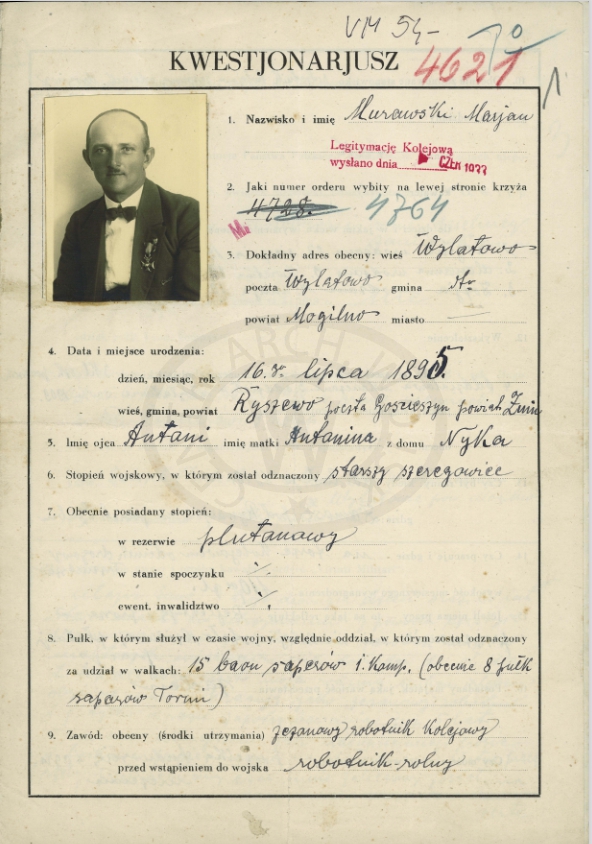 VM 54-
KWESTJONARJUSZ
4621
1
1. Nazwisko i imię Murawski Marjan
Legitymację Kolejową
wysłano dnia CZE 1933
2. Jaki numer orderu wybity na lewej stronie krzyża
4728. 4764
3. Dokładny adres obecny: wieś Wylatowo
poczta Wylatowo gmina
powiat Mogilno miasto —
4. Data i miejsce urodzenia:
dzień, miesiąc, rok 16. go lipca 1895.
wieś, gmina, powiat Ryszewo poczta Gościeszyn powiat Żnin
5. Imię ojca Antoni imię matki Antonina z domu Nyka
6. Stopień wojskowy, w którym został odznaczony starszy szeregowiec
7. Obecnie posiadany stopień:
w rezerwie plutonowy
w stanie spoczynku
ewent. inwalidztwo
8. Pułk, w którym służył w czasie wojny, względnie oddział, w którym został odznaczony
za udział w walkach: 15 baon saperów 1. Komp. (obecnie 8 pułk
saperów Toruń)
9. Zawód: obecny (środki utrzymania) sezonowy robotnik Kolejowy
przed wstąpieniem do wojska robotnik-rolny.